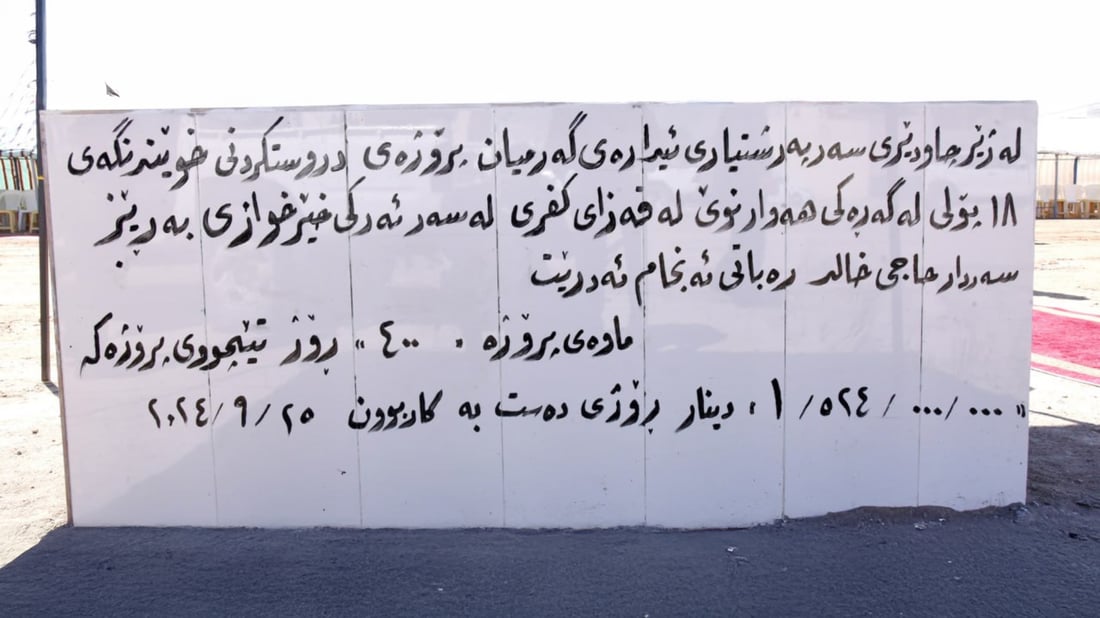 لە ژێر چاودێری سەرپەرشتیاری ئیدارەی گەرمیان پرۆژەی دروستکردنی خوێندنگەی
١٨ پۆلی لە گەڕەکی هەوار نوێ لە قەزای کفری لە سەر ئەرکی خێرخوازی بەڕێز
سەردار حاجی خالد رەباتی ئەنجام ئەدرێت
ماوەی پرۆژە " ٤٠٠ " ڕۆژ تێچووی پرۆژەکە
" ١/٥٢٤/٠٠٠/٠٠٠ " دینار ڕۆژی دەست بە کاربوون ٢٠٢٤/٩/٢٥